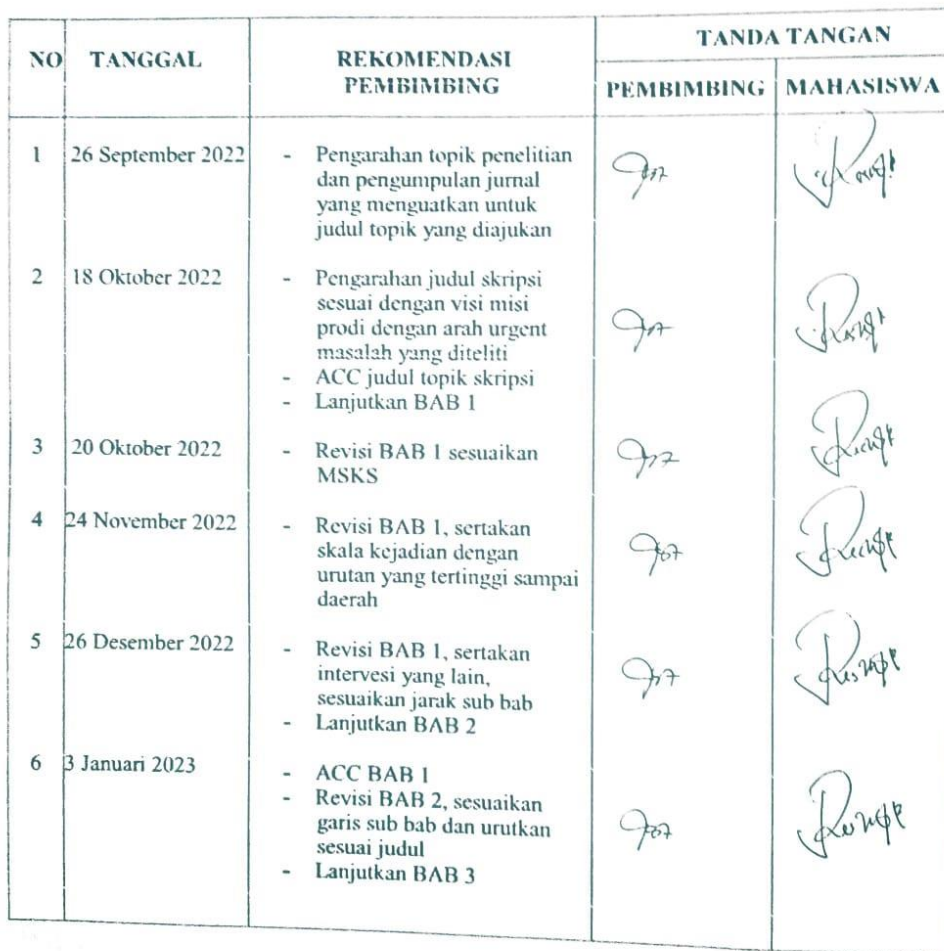 NO TANGGAL REKOMENDASI PEMBIMBING TANDA TANGAN
PEMBIMBING MAHASISWA
1 26 September 2022 - Pengarahan topik penelitian
dan pengumpulan jurnal
yang menguatkan untuk
judul topik yang diajukan
2 18 Oktober 2022 - Pengarahan judul skripsi
sesuai dengan visi misi
prodi dengan arah urgent
masalah yang diteliti
- ACC judul topik skripsi
- Lanjutkan BAB 1
3 20 Oktober 2022 - Revisi BAB 1 sesuaikan
MSKS
4 24 November 2022 - Revisi BAB 1, sertakan
skala kejadian dengan
urutan yang tertinggi sampai
daerah
5 26 Desember 2022 - Revisi BAB 1, sertakan
intervesi yang lain,
sesuaikan jarak sub bab
- Lanjutkan BAB 2
6 3 Januari 2023 - ACC BAB 1
- Revisi BAB 2, sesuaikan
garis sub bab dan urutkan
sesuai judul
- Lanjutkan BAB 3